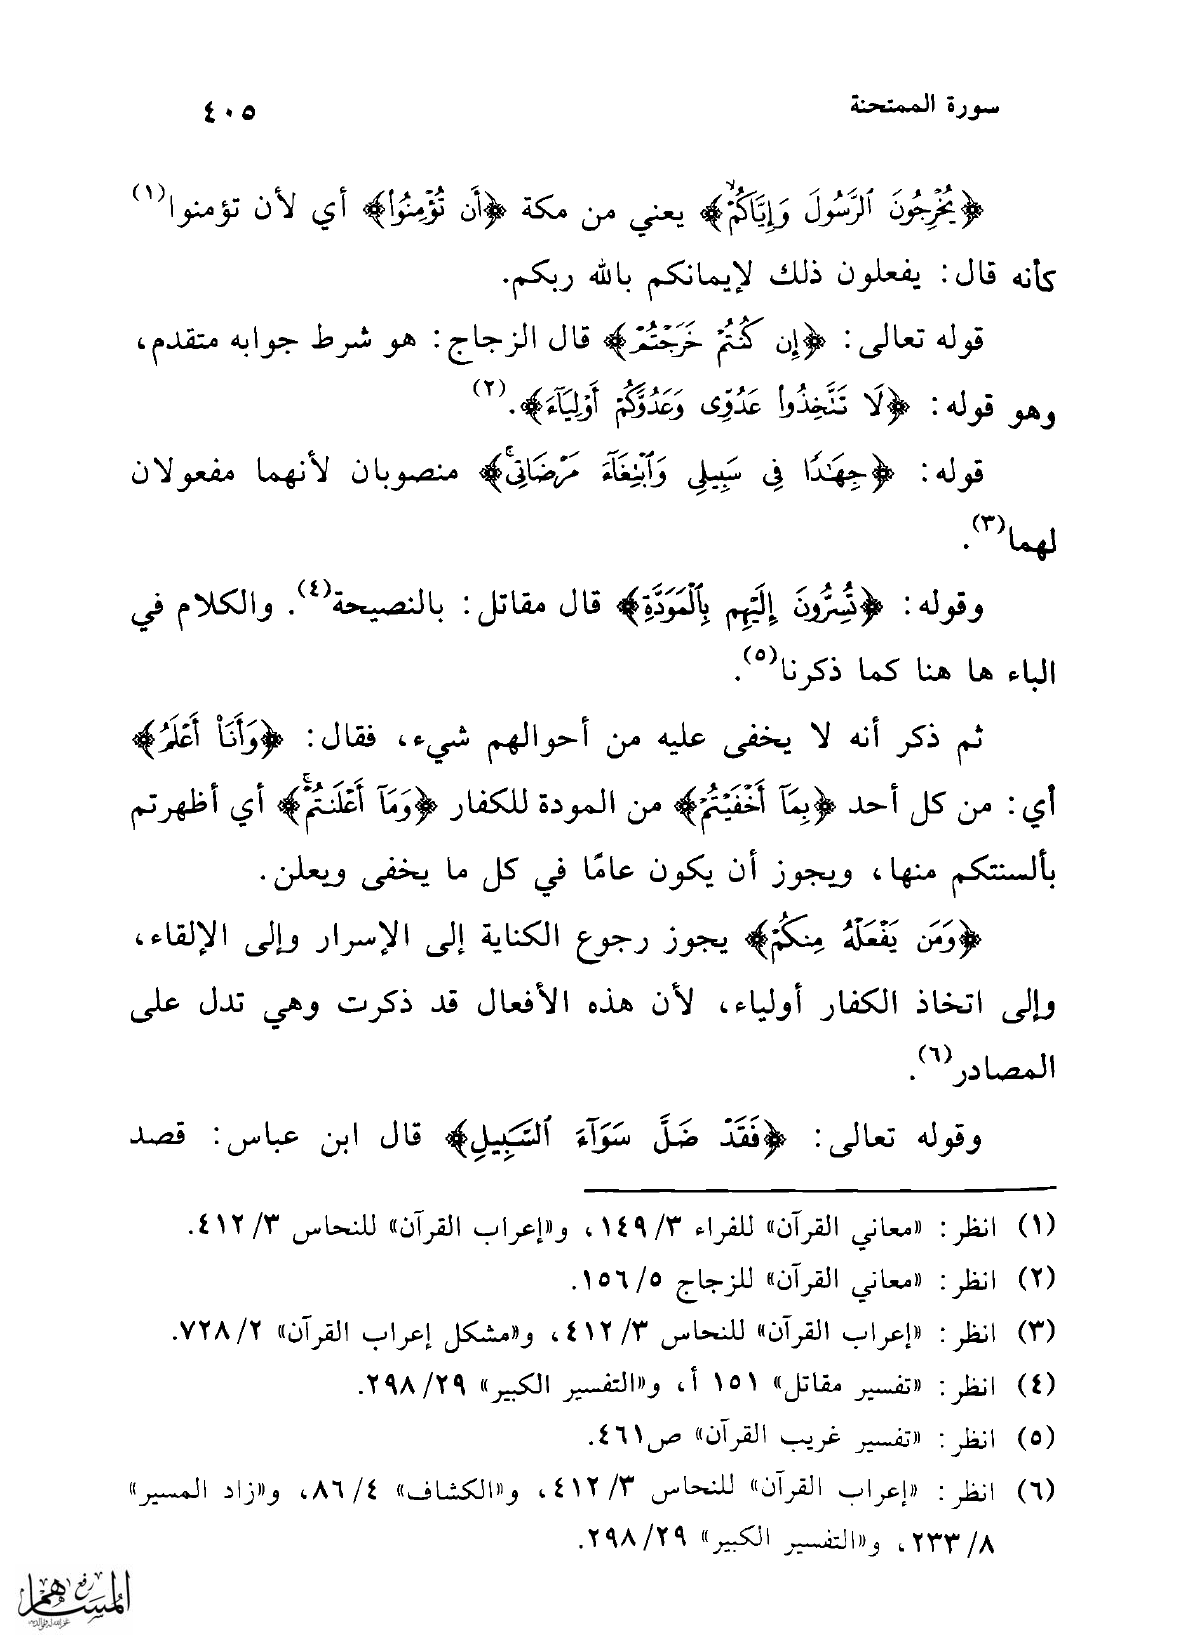 سورة الممتحنة
٤٠٥
﴿يُخْرِجُونَ ٱلرَّسُولَ وَإِيَّاكُمْۙ﴾ يعني من مكة ﴿أَن تُؤْمِنُواْ﴾ أي لأن تؤمنوا(١)
كأنه قال: يفعلون ذلك لإيمانكم بالله ربكم.
قوله تعالى: ﴿إِن كُنتُمْ خَرَجْتُمْ﴾ قال الزجاج: هو شرط جوابه متقدم،
وهو قوله: ﴿لَا تَتَّخِذُواْ عَدُوِّى وَعَدُوَّكُمْ أَوْلِيَآءَ﴾.(٢)
قوله: ﴿جِهَٰدًا فِى سَبِيلِى وَٱبْتِغَآءَ مَرْضَاتِىۚ﴾ منصوبان لأنهما مفعولان
لهما(٣).
وقوله: ﴿تُسِرُّونَ إِلَيْهِم بِٱلْمَوَدَّةِ﴾ قال مقاتل: بالنصيحة(٤). والكلام في
الباء ها هنا كما ذكرنا(٥).
ثم ذكر أنه لا يخفى عليه من أحوالهم شيء، فقال: ﴿وَأَنَا۠ أَعْلَمُ﴾
أي: من كل أحد ﴿بِمَآ أَخْفَيْتُمْ﴾ من المودة للكفار ﴿وَمَآ أَعْلَنتُمْۚ﴾ أي أظهرتم
بألسنتكم منها، ويجوز أن يكون عامًا في كل ما يخفى ويعلن.
﴿وَمَن يَفْعَلْهُ مِنكُمْ﴾ يجوز رجوع الكناية إلى الإسرار وإلى الإلقاء،
وإلى اتخاذ الكفار أولياء، لأن هذه الأفعال قد ذكرت وهي تدل على
المصادر(٦).
وقوله تعالى: ﴿فَقَدْ ضَلَّ سَوَآءَ ٱلسَّبِيلِ﴾ قال ابن عباس: قصد
(١) انظر: «معاني القرآن» للفراء ٣/ ١٤٩، و«إعراب القرآن» للنحاس ٣/ ٤١٢.
(٢) انظر: «معاني القرآن» للزجاج ٥/ ١٥٦.
(٣) انظر: «إعراب القرآن» للنحاس ٣/ ٤١٢، و«مشكل إعراب القرآن» ٢/ ٧٢٨.
(٤) انظر: «تفسير مقاتل» ١٥١ أ، و«التفسير الكبير» ٢٩/ ٢٩٨.
(٥) انظر: «تفسير غريب القرآن» ص٤٦١.
(٦) انظر: «إعراب القرآن» للنحاس ٣/ ٤١٢، و«الكشاف» ٤/ ٨٦، و«زاد المسير»
٨/ ٢٣٣، و«التفسير الكبير» ٢٩/ ٢٩٨.